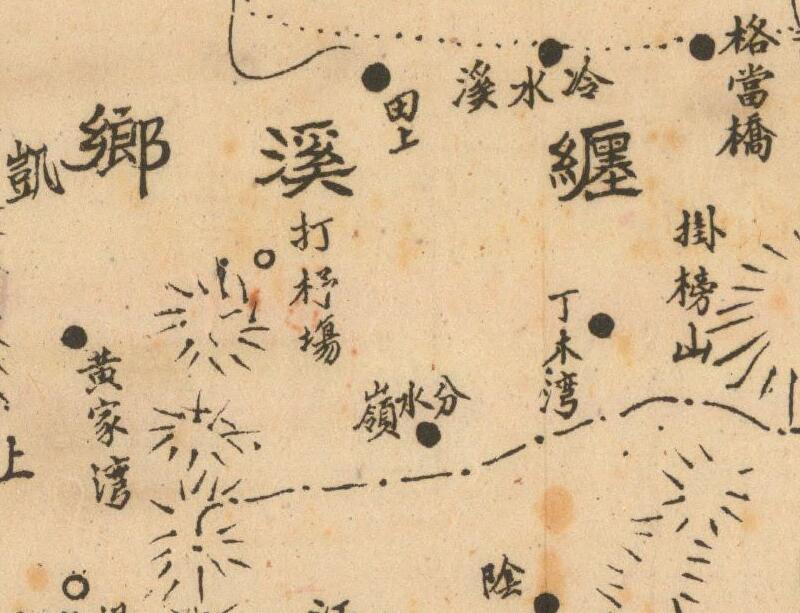 格當橋
冷水溪
田上
纏溪鄉
凱
掛榜山
打杼場
丁木湾
分水嶺
黃家湾
上
陰